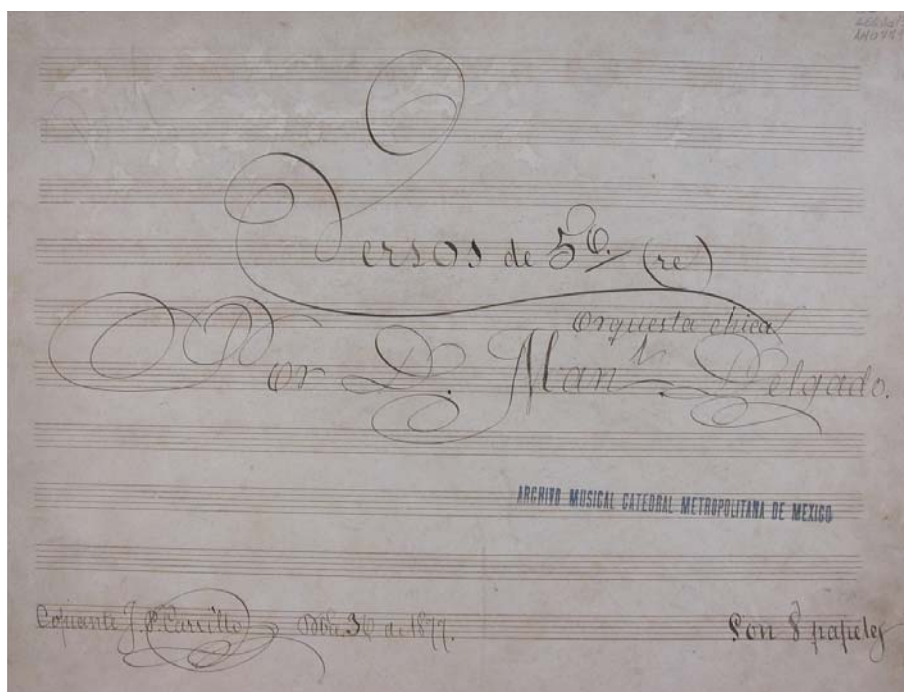 Legajo
AM0789
Versos de 5º (re)
Orquesta chica
Por D. Man.l Delgado.
ARCHIVO MUSICAL CATEDRAL METROPOLITANA DE MEXICO
Copiante J. P. Carrillo de 1877.
Son 8 papeles